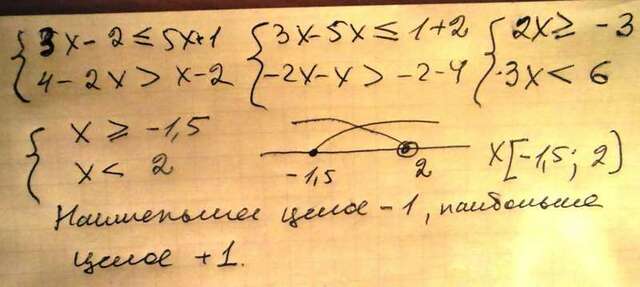 { 3x - 2 ≤ 5x + 1 { 3x - 5x ≤ 1 + 2 { 2x ≥ -3
4 - 2x > x - 2 -2x - x > -2 - 4 ·3x < 6
{ x ≥ -1,5
x < 2 -1,5 2 x[-1,5; 2)
Наименьшее целое -1, наибольшее
целое +1.